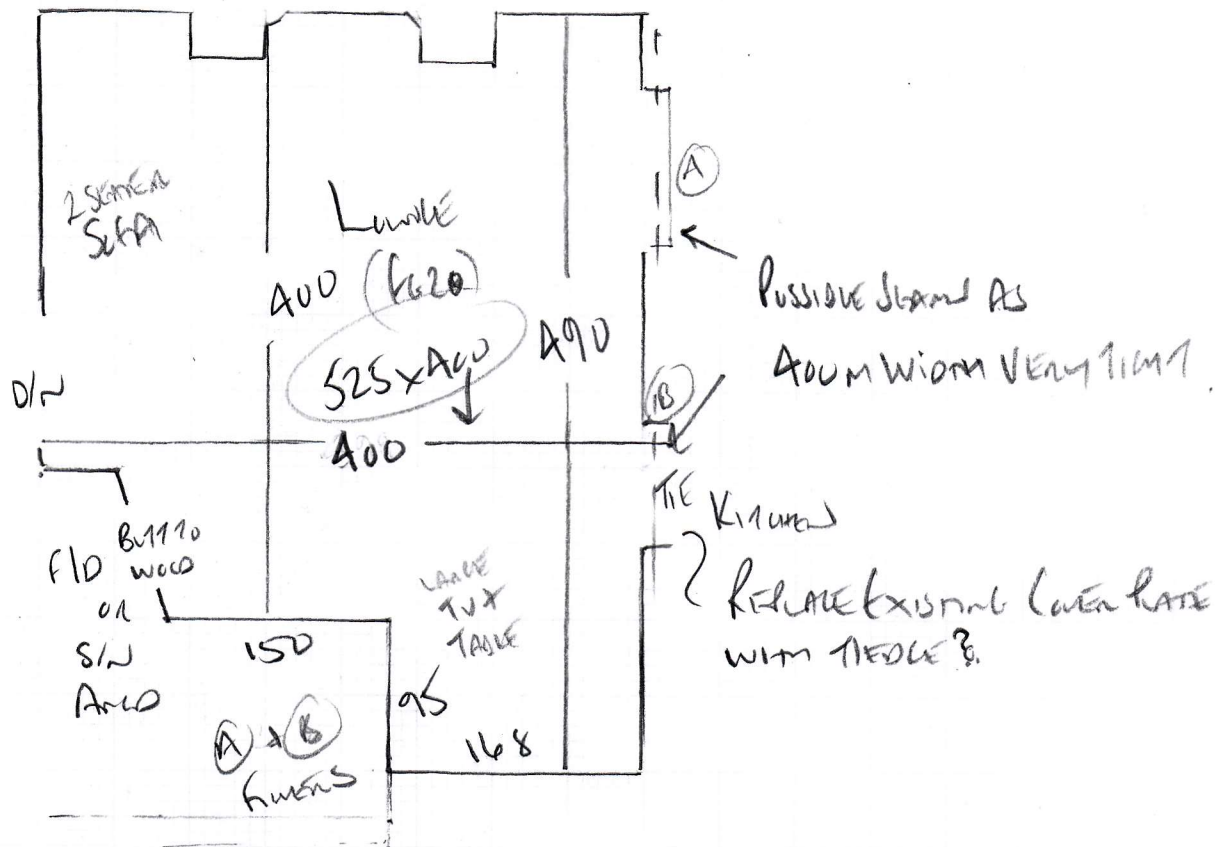 A
2 SEATER
SOFA
LOUNGE
400
525 x 400
490
POSSIBLE SEAMS AS
400M WIDTH VERY TIGHT
D/N
B
400
KITCHEN
REPLACE EXISTING COVER PLATE
WITH TIEDGE?
BUTT TO
F/D WOOD
OR
S/N
LARGE
TV +
TABLE
150
95
168
A + B